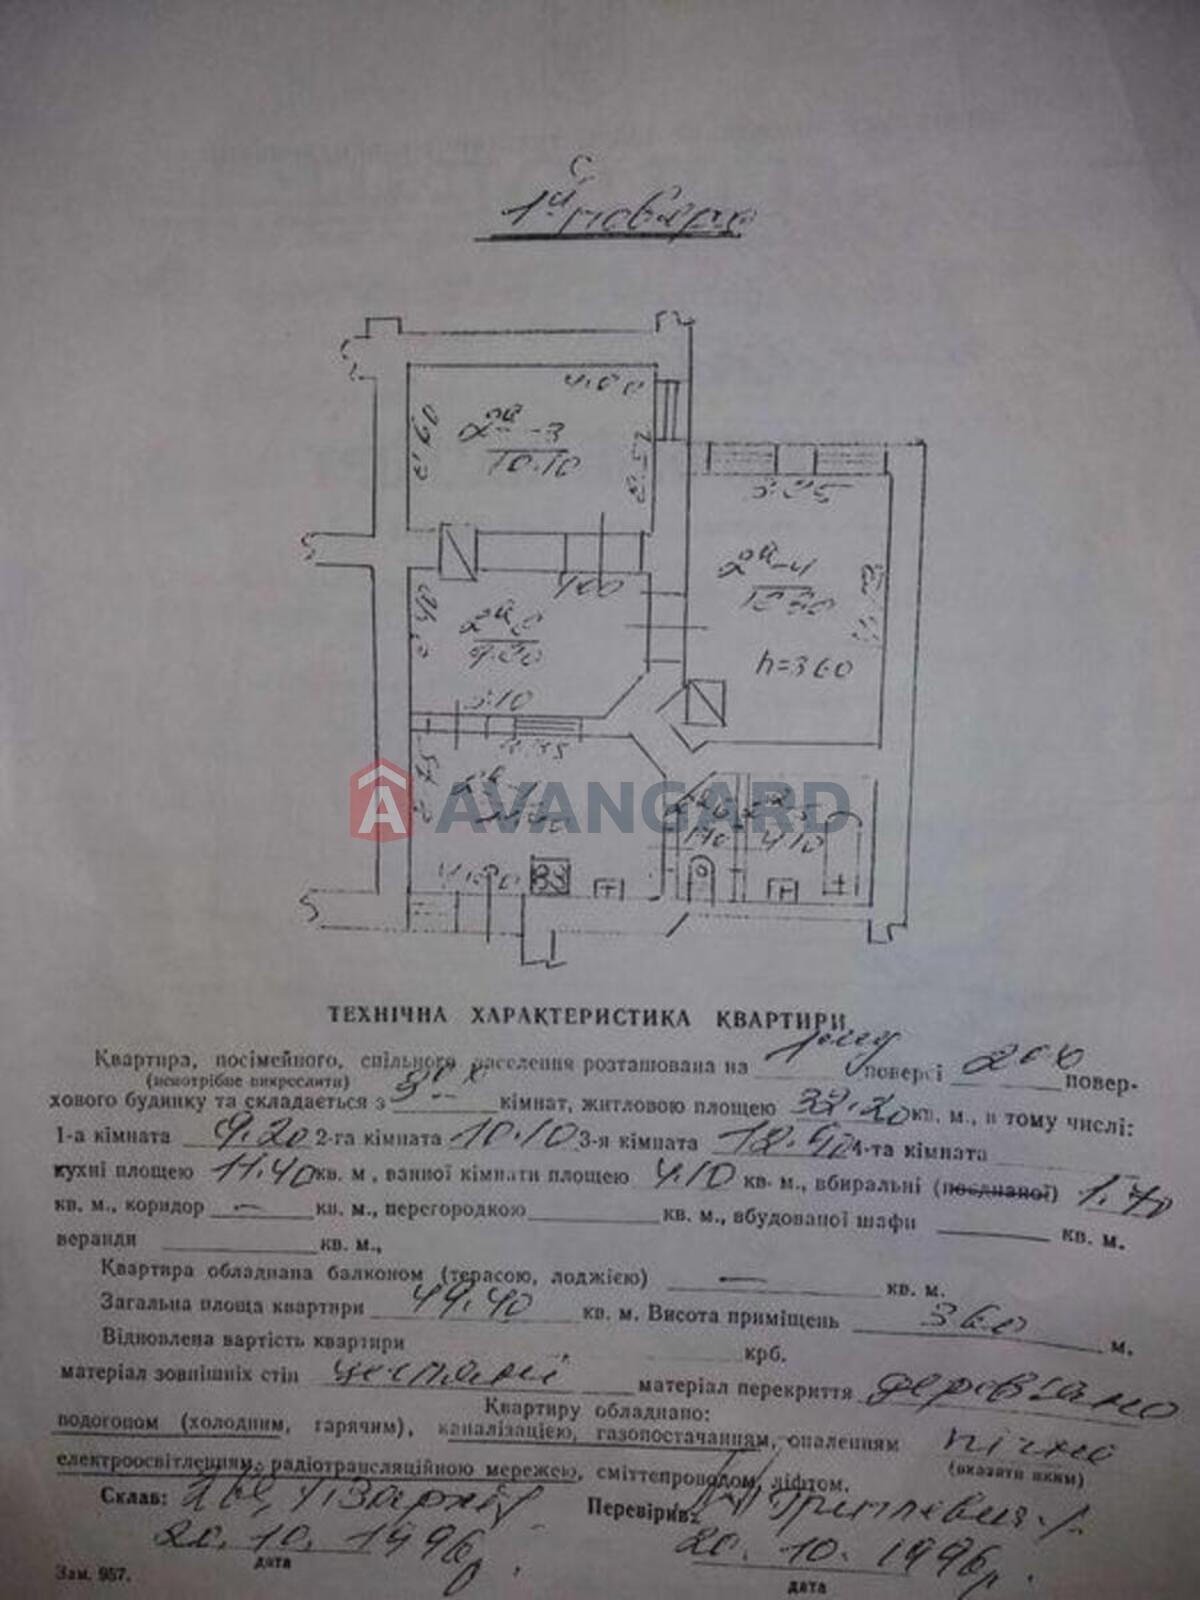 С
1й поверх
4.00
2й-3
10.10
3.25
2й-4
h=360
4.00
2й-2
9.20
3.10
4.10
AVANGARD
ТЕХНІЧНА ХАРАКТЕРИСТИКА КВАРТИРИ
Квартира, посімейного, спільного заселення розташована на поверсі 2ох повер-
(непотрібне викреслити)
хового будинку та складається з 3ох кімнат, житловою площею кв. м., в тому числі:
1-а кімната 9.20 2-га кімната 10.10 3-я кімната 4-та кімната
кухні площею 11.40 кв. м., ванної кімнати площею 4.10 кв. м., вбиральні (поєднаної)
кв. м., коридор — кв. м., перегородкою кв. м., вбудованої шафи кв. м.
веранди кв. м.,
Квартира обладнана балконом (терасою, лоджією) — кв. м.
Загальна площа квартири 49.40 кв. м. Висота приміщень 360 м.
Відновлена вартість квартири крб.
матеріал зовнішніх стін матеріал перекриття
Квартиру обладнано:
водогоном (холодним, гарячим), каналізацією, газопостачанням, опаленням пічне
(вказати яким)
електроосвітленням, радіотрансляційною мережею, сміттєпроводом, ліфтом.
Склав: Перевірив:
20.10.1996р. 20.10.1996р.
дата дата
Зам. 957.